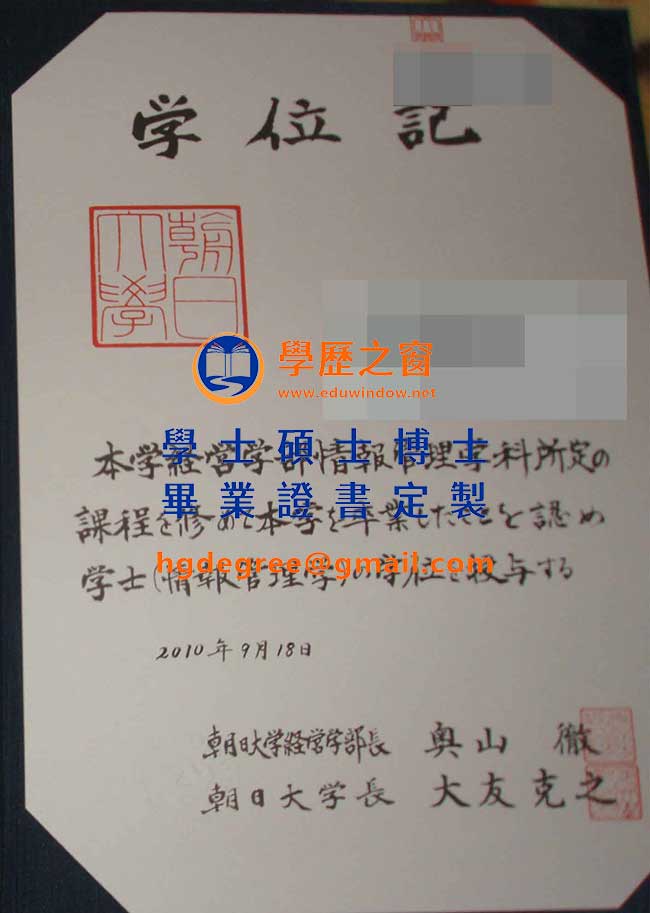 学位記
朝日
大學
學歷之窗
www.eduwindow.net
本学経営学部情報管理学科所定の
學士碩士博士
課程を修めて本学を卒業したことを認め
畢業證書定製
hgdegree@gmail.com
学士(情報管理学)の学位を授与する
2010年9月18日
朝日大学経営学部長 奥山 徹
朝日大学長 大友克之